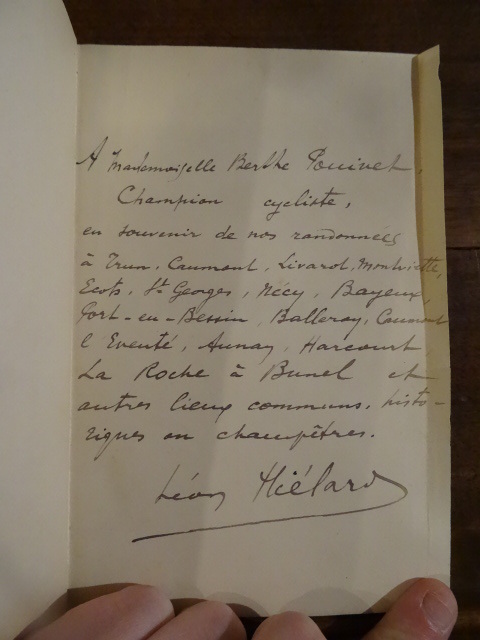 A Mademoiselle Berthe Pouivet,
Champion cycliste,
en souvenir de nos randonnées
à Trun, Caumont, Livarot, Montviette,
Ecots, St Georges, Nécy, Bayeux,
Port-en-Bessin, Balleroy, Caumont
l'Eventé, Aunay, Harcourt,
La Roche à Bunel et
autres lieux communs, histo-
riques ou champêtres.
Léon Hiélard